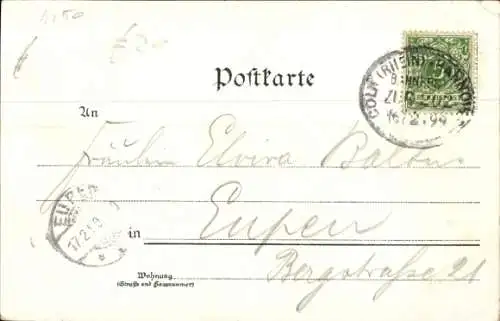 1250
Postkarte
CÖLN (RHEIN) HANNOVER
BAHNPOST
ZUG
16.2.99
An
Fräulein Elvira Baltus
EUPEN
17.2.
in Eupen
Bergstrasse 21
Wohnung
(Straße und Hausnummer)